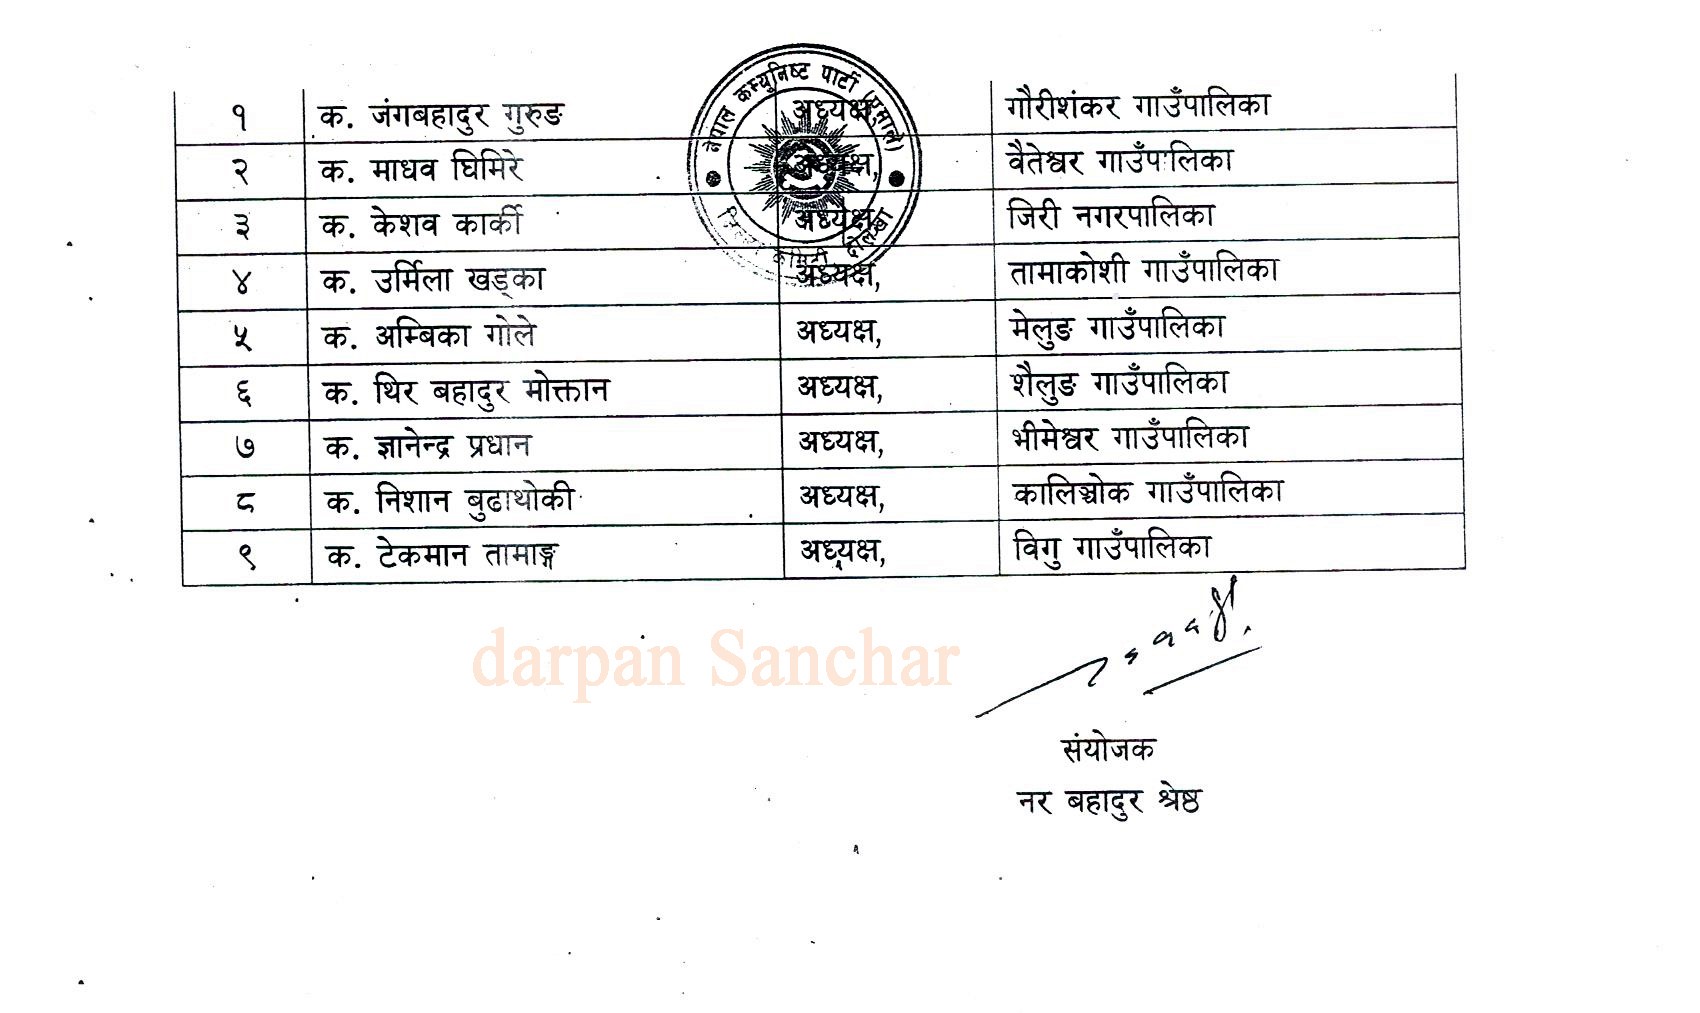 नेपाल कम्युनिष्ट पार्टी (एमाले)
जिल्ला कमिटी दोलखा
१ क. जंगबहादुर गुरुङ अध्यक्ष, गौरीशंकर गाउँपालिका
२ क. माधव घिमिरे अध्यक्ष, वैतेश्वर गाउँपालिका
३ क. केशव कार्की अध्यक्ष, जिरी नगरपालिका
४ क. उर्मिला खड्का अध्यक्ष, तामाकोशी गाउँपालिका
५ क. अम्बिका गोले अध्यक्ष, मेलुङ गाउँपालिका
६ क. थिर बहादुर मोक्तान अध्यक्ष, शैलुङ गाउँपालिका
७ क. ज्ञानेन्द्र प्रधान अध्यक्ष, भीमेश्वर गाउँपालिका
८ क. निशान बुढाथोकी अध्यक्ष, कालिञ्चोक गाउँपालिका
९ क. टेकमान तामाङ्ग अध्यक्ष, विगु गाउँपालिका
darpan Sanchar
संयोजक
नर बहादुर श्रेष्ठ